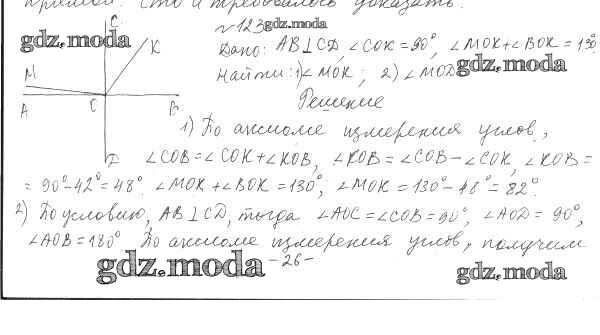 прямой. Что и требовалось доказать.
C
№123 gdz.moda
gdz.moda
K
Дано: AB⊥CD, ∠COK = 90°, ∠MOK+∠BOK = 130°
M
Найти: 1) ∠MOK; 2) ∠MOD
gdz.moda
A C B
Решение
1) По аксиоме измерения углов,
D
∠COB = ∠COK + ∠KOB, ∠KOB = ∠COB − ∠COK, ∠KOB =
= 90° − 42° = 48°. ∠MOK + ∠BOK = 130°, ∠MOK = 130° − 48° = 82°.
2) По условию, AB⊥CD, тогда ∠AOC = ∠COB = 90°, ∠AOD = 90°,
∠AOB = 180°. По аксиоме измерения углов, получим
gdz.moda
-26-
gdz.moda